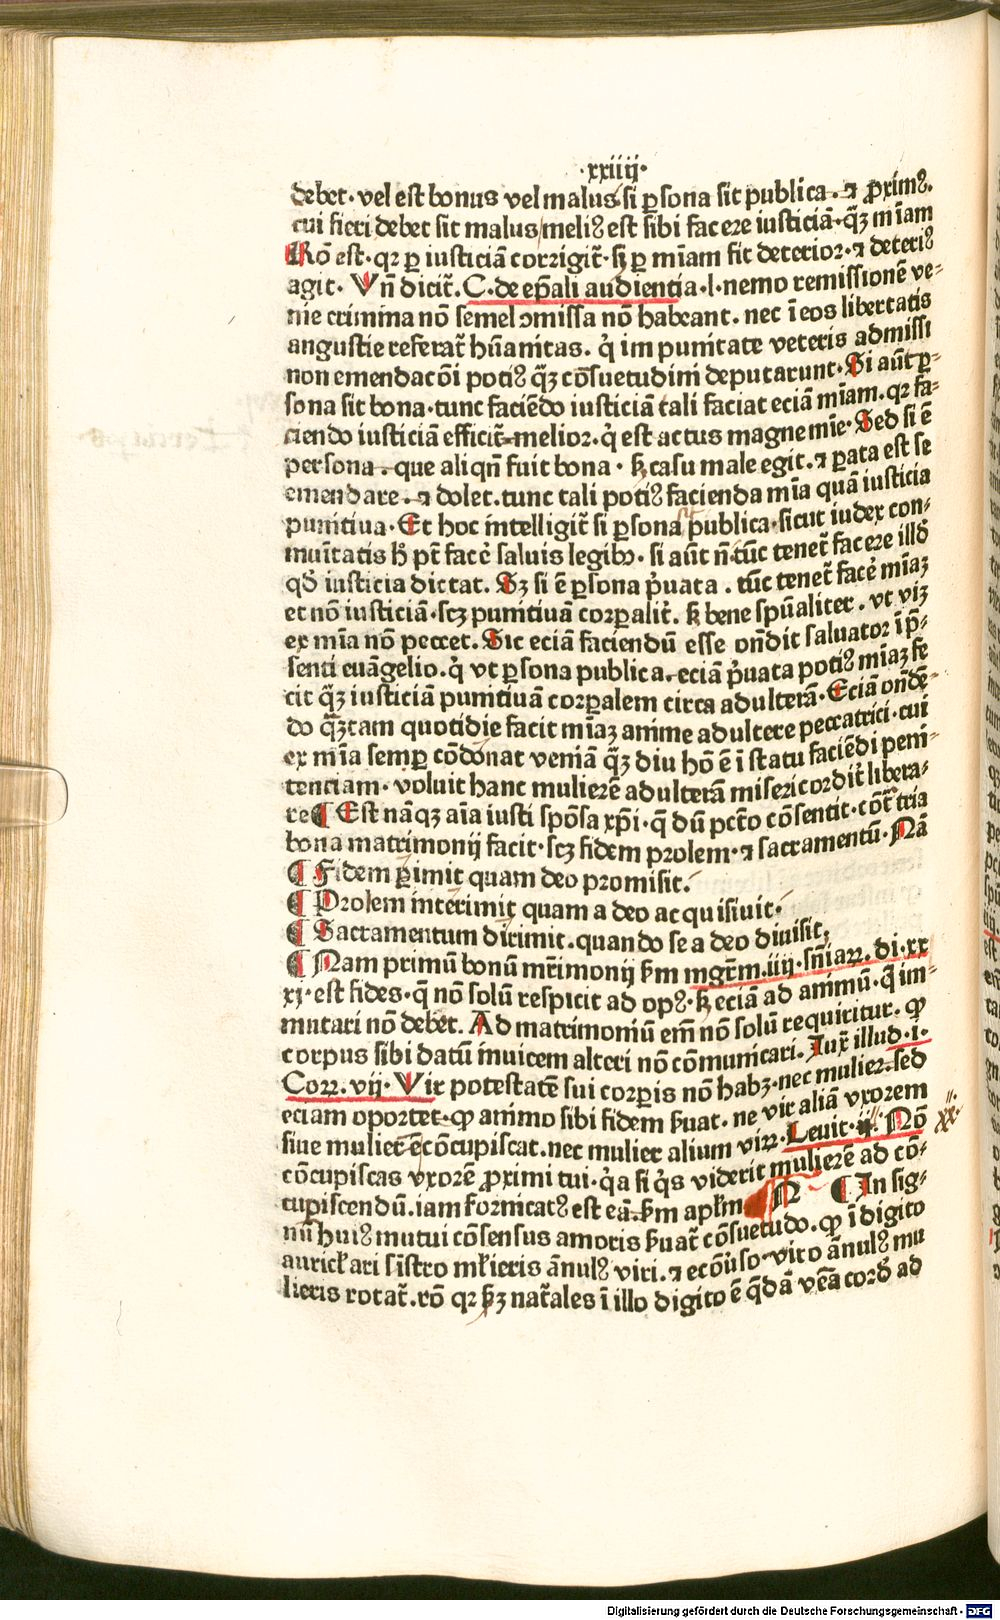 ·xxiiij·
debet· vel est bonus vel malus si ꝑsona sit publica· ⁊ ꝓximꝰ.
cui fieri debet sit malus/meliꝰ est sibi facere iusticiā·qꝫ mīam
Rō est· qꝛ ꝑ iusticiā corrigit̄· sꝫ ꝑ mīam fit deterior·⁊ deteriꝰ
agit· Vn̄ dicit̄. C·de ep̄ali audientia·l·nemo remissionē ve-
nie crimina nō semel ↄmissa nō habeant. nec ī eos libertatis
angustie referat̄ hūanitas. q̇ impunitate veteris admissi
non emendacōi potiꝰ qꝫ cōsuetudini deputarunt·Si aūt ꝑ-
sona sit bona·tunc faciēdo iusticiā tali faciat eciā mīam. qꝛ fa-
ciendo iusticiā efficit̄ melior. q̇ est actus magne mīe· Sed si ē
persona· que aliqn̄ fuit bona· sꝫ casu male egit.⁊ ꝑata est se
emendare. ⁊ dolet. tunc tali potiꝰ facienda mīa quā iusticia
punitiua·Et hoc intelligit̄ si ꝑsona publica·sicut iudex con-
mūitatis hꝫ pt̄ facē saluis legibꝫ. si aūt n̄·tūc tenet̄ facere illd̄
qd̄ iusticia dictat. Sꝫ si ē ꝑsona p̄uata. tūc tenet̄ facē mīaꝫ
et nō iusticiā·scꝫ punitiuā corꝑalit̄. sꝫ bene spūaliter. vt viꝫ
ex mīa nō peccet. Sic eciā faciendū esse ondit saluator ī p̄-
senti euāgelio. q̇ vt ꝑsona publica·eciā p̄uata potiꝰ mīaꝫ fe
cit qꝫ iusticiā punitiuā corꝑalem circa adulterā·Eciā ondē-
do qꝫtam quotidie facit mīaꝫ anime adultere peccatrici·cui
ex mīa semꝑ cōdonat veniā qꝫ diu hō ē ī statu faciēdi peni-
tenciam· voluit hanc mulierē adulterā misericordit̄ libera-
re ¶ Est nāqꝫ aīa iusti spōsa xp̄i·q̄ dū pctō cōsentit·cōt̄ tria
bona matrimonij facit·scꝫ fidem prolem·⁊ sacramentū·Nā
¶ Fidem ꝑimit quam deo promisit.
¶ Prolem interimit quam a deo acquisiuit·
¶ Sacramentum dirimit. quando se a deo diuisit,
¶ Nam primū bonū mr̄imonij ẜm mgrm̄.iiij.sn̄iaꝝ. di·xx
xj·est fides·q̄ nō solū respicit ad opꝰ·sꝫ eciā ad animū·q̄ im-
mutari nō debet. Ad matrimoniū em̄ nō solū requiritur. ꝙ
corpus sibi datū inuicem alteri nō cōmunicari. Iux̄ illud·i·
Corꝝ. vij· Vir potestatē sui corꝑis nō habꝫ·nec mulier. sed
eciam oportet·ꝙ animo sibi fidem ẜuat. ne vir aliā vxorem
siue mulierē cōcupiscat. nec mulier alium viꝝ. Leuit·ij· Nō
xx.
cōcupiscas vxorē ꝓximi tui·q̇a si q̇s viderit mulierē ad cō-
cupiscendū.iam fornicatꝰ est eā. ẜm apłm N ¶ In sig-
nū huiꝰ mutui cōsensus amoris ẜuat̄ cōsuetudo. ꝙ ī digito
auricłari sīistro młieris ānulꝰ viri.⁊ ecōuso·viro ānulꝰ mu
lieris rotat̄.rō qꝛ ẜꝫ nat̄ales ī illo digito ē q̄dā vēa cord̄ ad